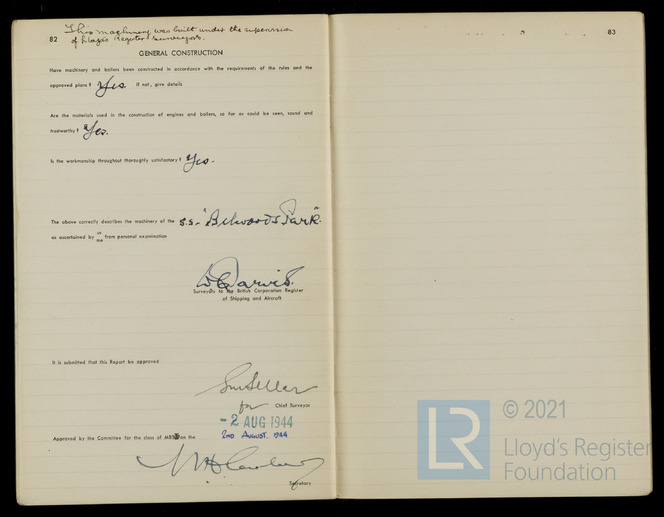 This machinery was built under the supervision
82
of Lloyds Register Surveyors.
GENERAL CONSTRUCTION
Have machinery and boilers been constructed in accordance with the requirements of the rules and the
approved plans? Yes If not, give details
Are the materials used in the construction of engines and boilers, so far as could be seen, sound and
trustworthy? Yes.
Is the workmanship throughout thoroughly satisfactory? Yes.
The above correctly describes the machinery of the S.S. "Belwoods Park".
as ascertained by us me from personal examination
Surveyors to the British Corporation Register
of Shipping and Aircraft
It is submitted that this Report be approved
for Chief Surveyor
- 2 AUG 1944
Approved by the Committee for the class of on the 2ND AUGUST, 1944
Secretary
83
© 2021
LR
Lloyd's Register
Foundation